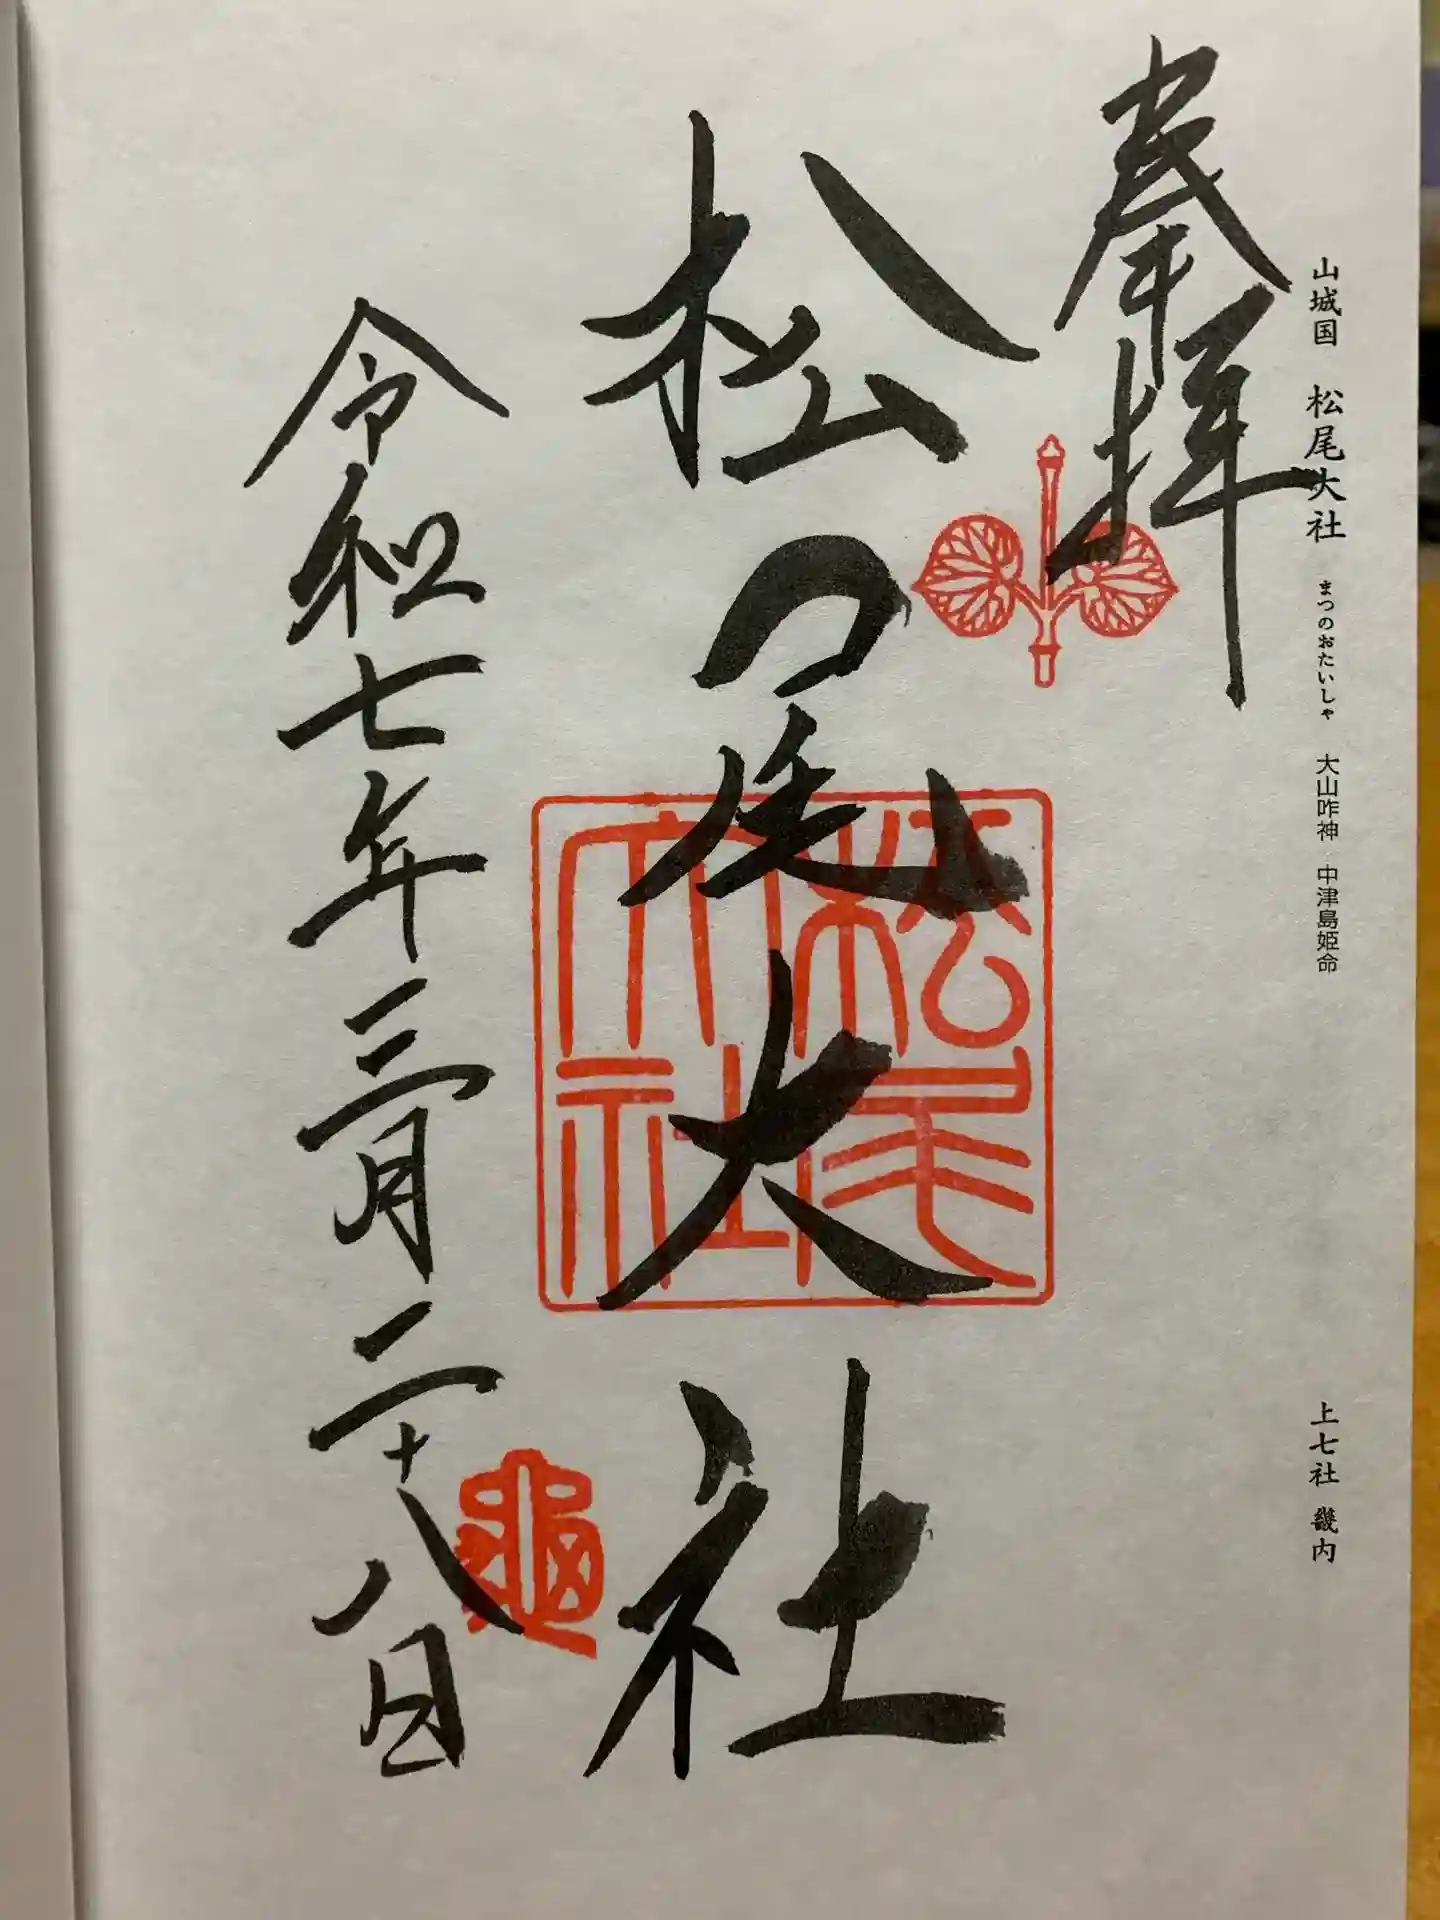 山城国 松尾大社 まつのおたいしゃ 大山咋神 中津島姫命 上七社 畿内
奉拝
松尾大社
松尾大社
令和七年三月二十八日
亀